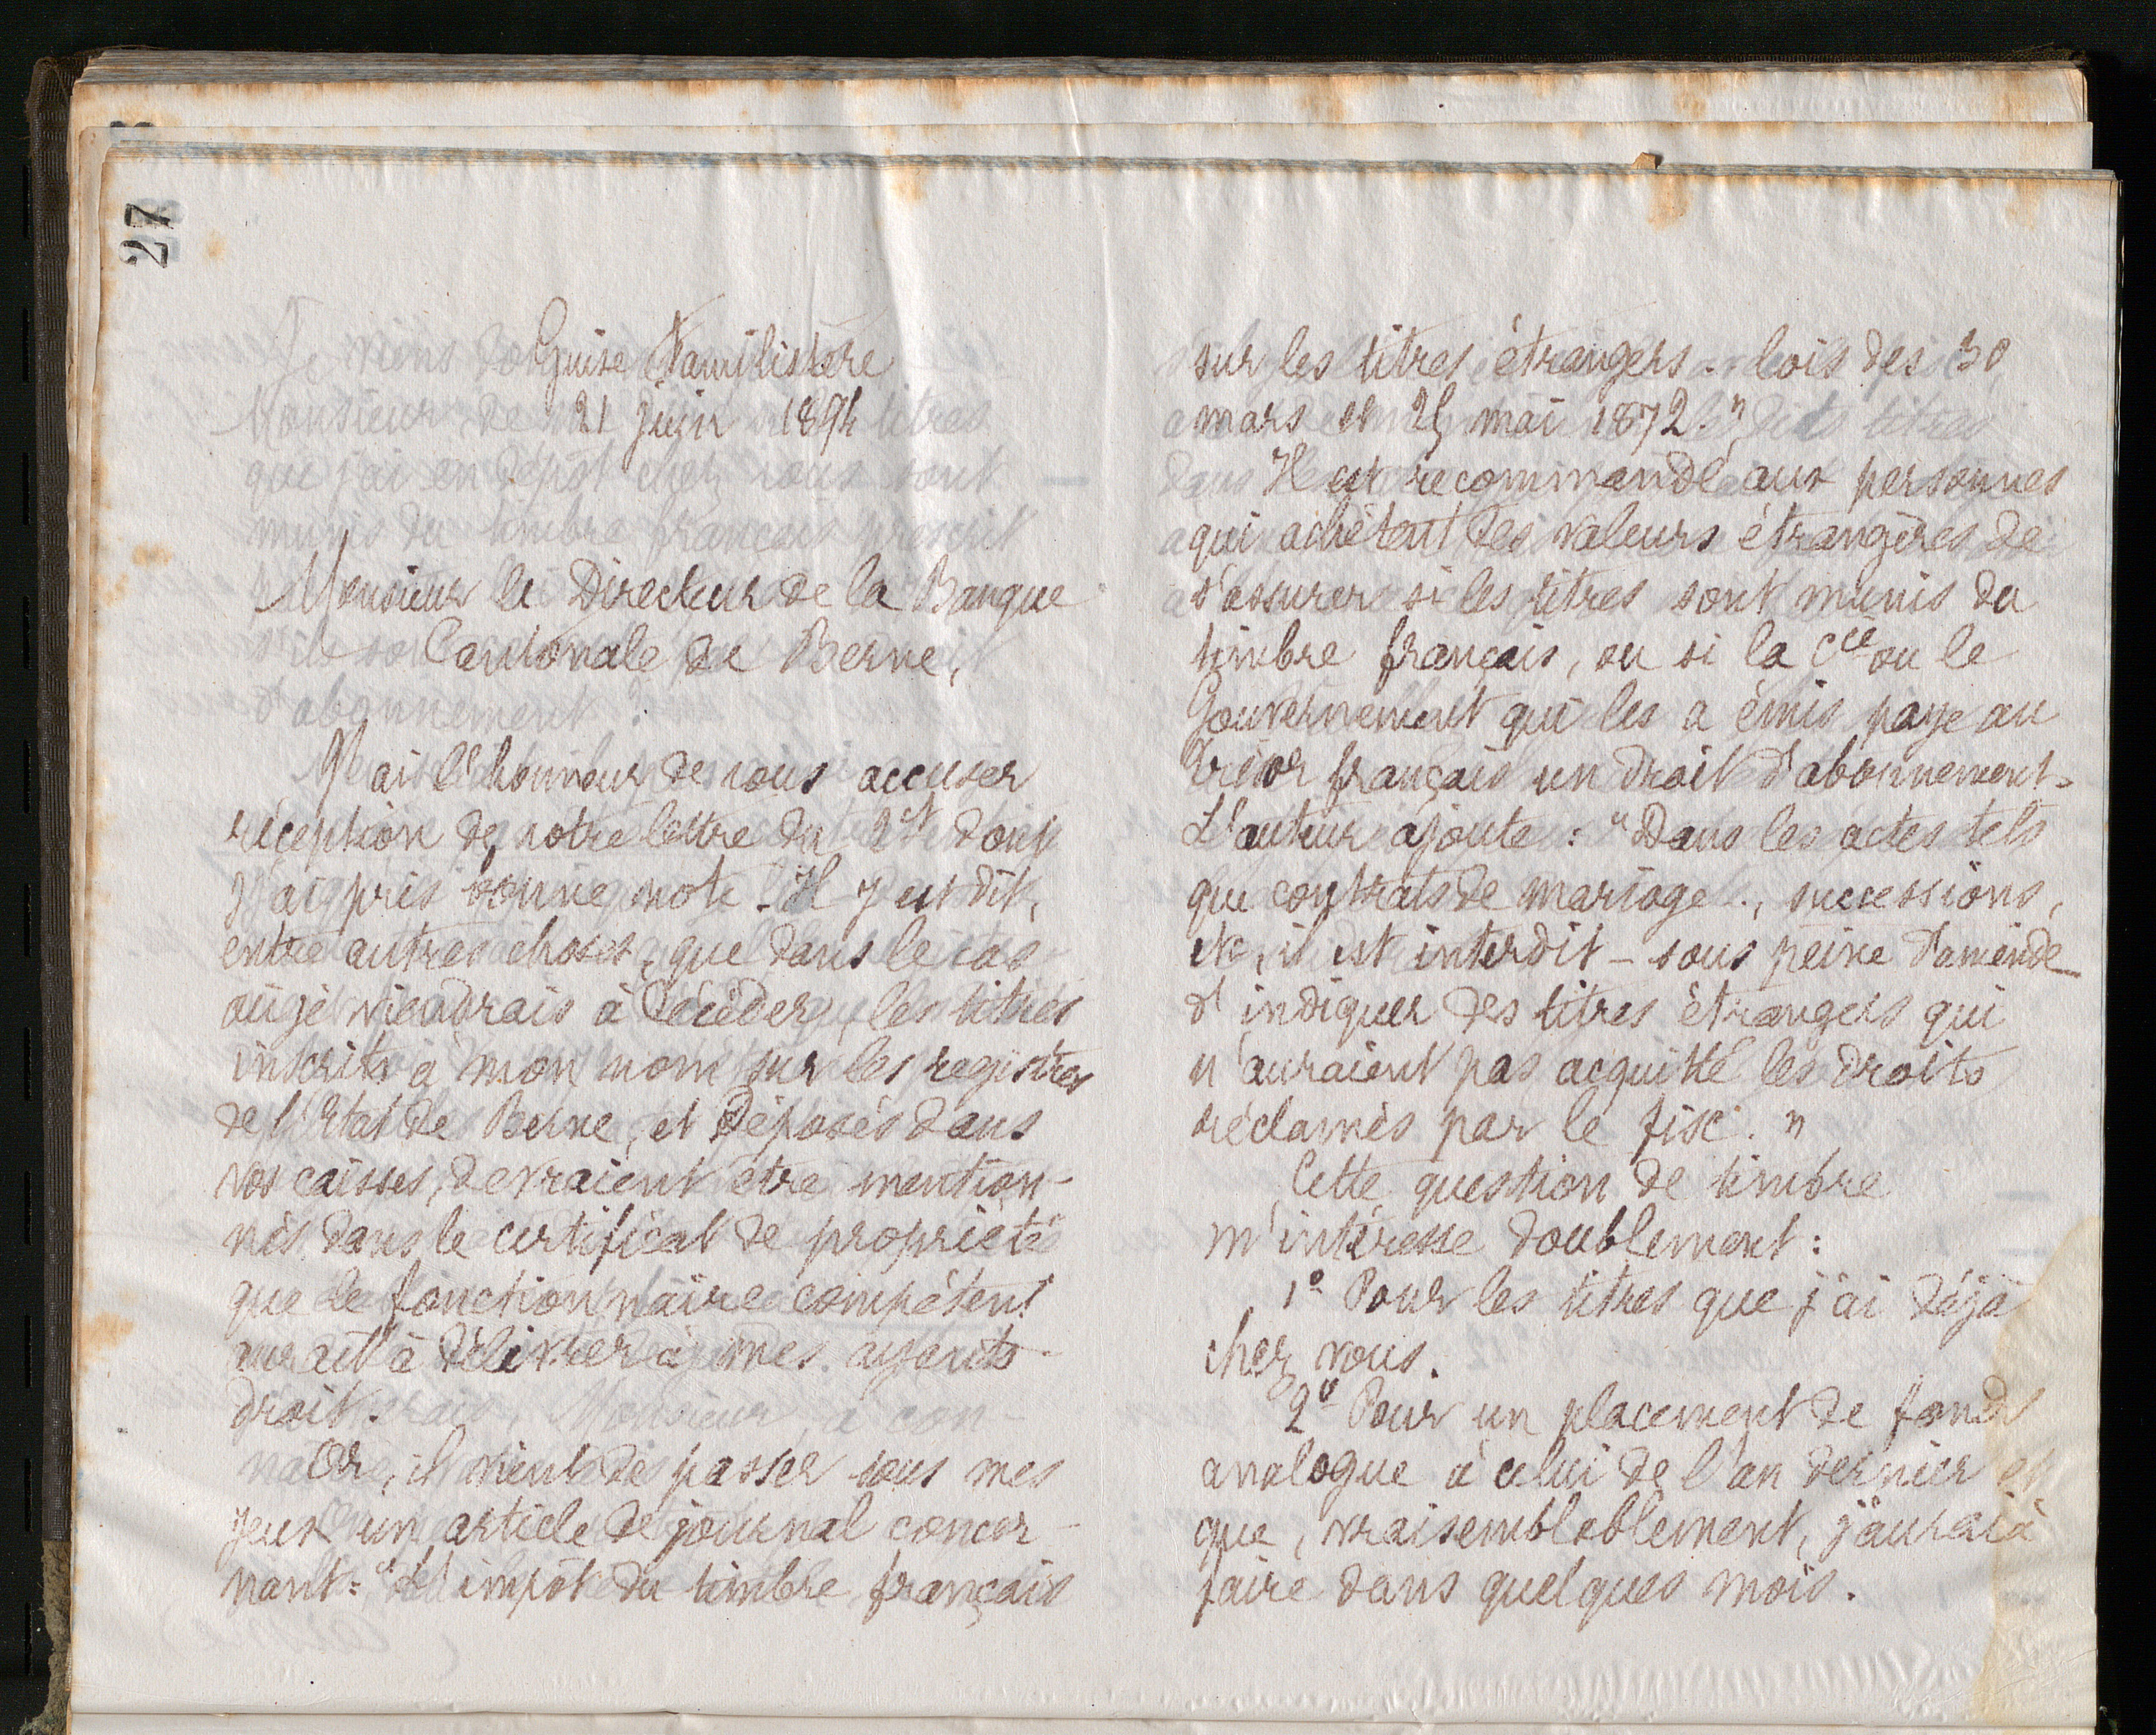 27
Guise Familistère
21 juin 1894
Monsieur le Directeur de la Banque
Cantonale de Berne,
J'ai l'honneur de vous accuser
réception de votre lettre du 2 ct dont
j'ai pris bonne note. Il y est dit,
entre autres choses, que dans le cas
où je viendrais à décéder, les titres
inscrits à mon nom sur les registres
de l'Etat de Berne, et déposés dans
vos caisses, devraient être mention-
nés dans le certificat de propriété
que le fonctionnaire compétent
aurait à délivrer à mes ayants
droit.
Or, il vient de passer sous mes
yeux un article de journal concer-
nant : "L'impôt du timbre français
sur les titres étrangers. lois des 30
mars et 25 mai 1872."
Il est recommandé aux personnes
qui achètent des valeurs étrangères de
s'assurer si les titres sont munis du
timbre français, ou si la Cie ou le
Gouvernement qui les a émis paye au
Trésor français un droit d'abonnement.
L'auteur ajoute : "Dans les actes tels
que contrats de mariage, successions,
etc, il est interdit - sous peine d'amende_
d'indiquer des titres étrangers qui
n'auraient pas acquitté les droits
réclamés par le fisc."
Cette question de timbre
m'intéresse doublement :
1º Pour les titres que j'ai déjà
chez vous.
2º Pour un placement de fonds
analogue à celui de l'an dernier et
que, vraisemblablement, j'aurai à
faire dans quelques mois.